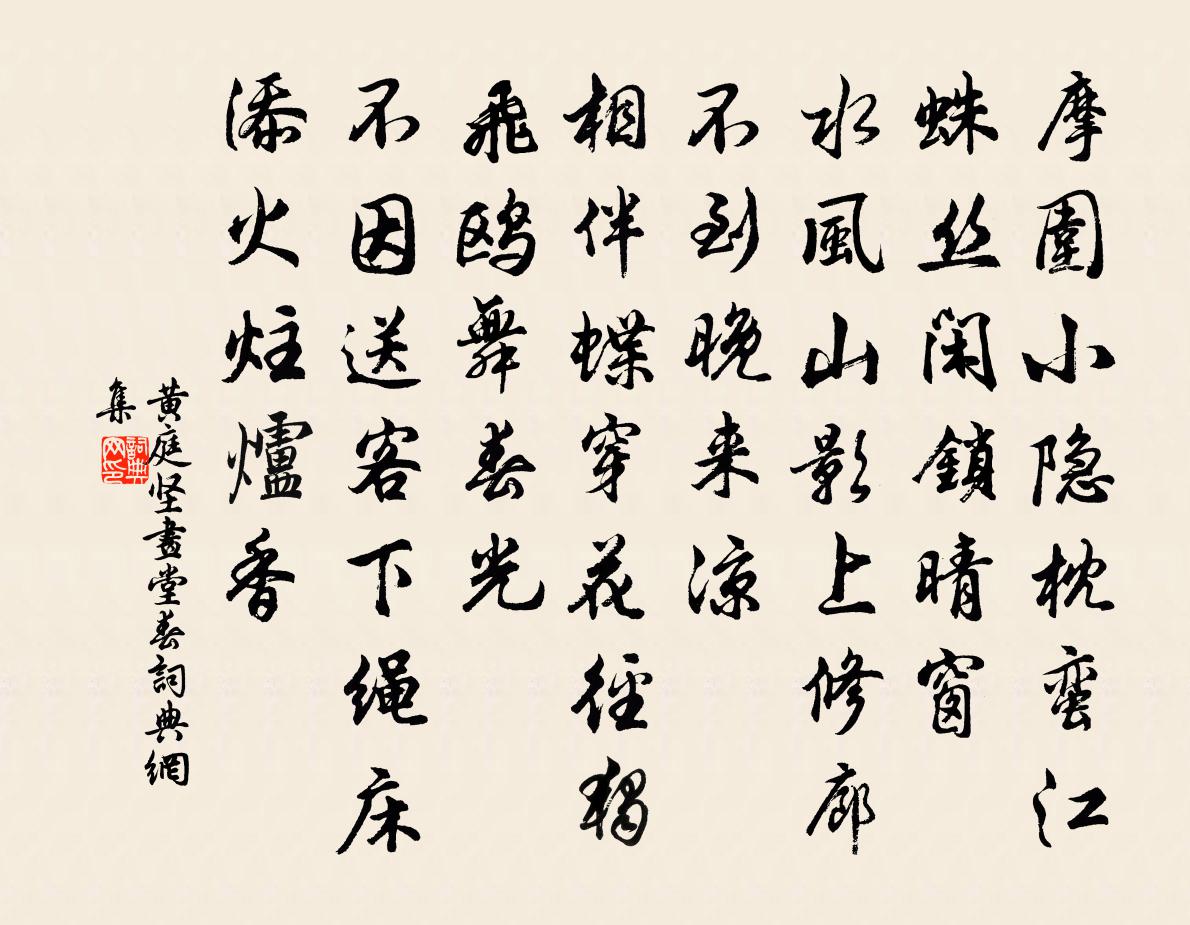 摩圍小隐枕蛮江
蛛丝闲鎖晴窗
水風山影上修廊
不到晚来凉
相伴蝶穿花徑
独飛鸥舞春光
不因送客下绳床
添火炷爐香
黄庭坚畫堂春詞典網
集
詞典網印